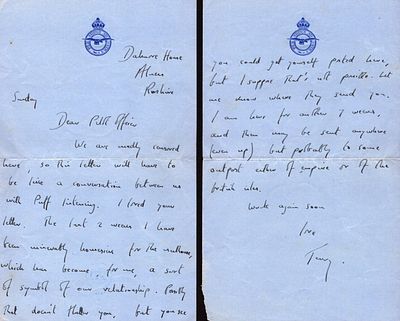 Dalmore House
Alness
Rossshire
Sunday
Dear Pilot Officer
We are madly censored
here, so this letter will have to
be like a conversation between us
with Puff listening. I loved your
letter. The last 2 weeks I have
been miserably homesick for the
which has become, for me, a sort
of symbol of our relationship. Possibly
that doesn't flatter you, but you see
you could get yourself posted here,
but I suppose that's not possible. Let
me know where they send you.
I am here for another 2 weeks,
and then may be sent anywhere
(even up) but probably to some
outpost either of empire or of the
british isles.
write again soon
love
Terry.